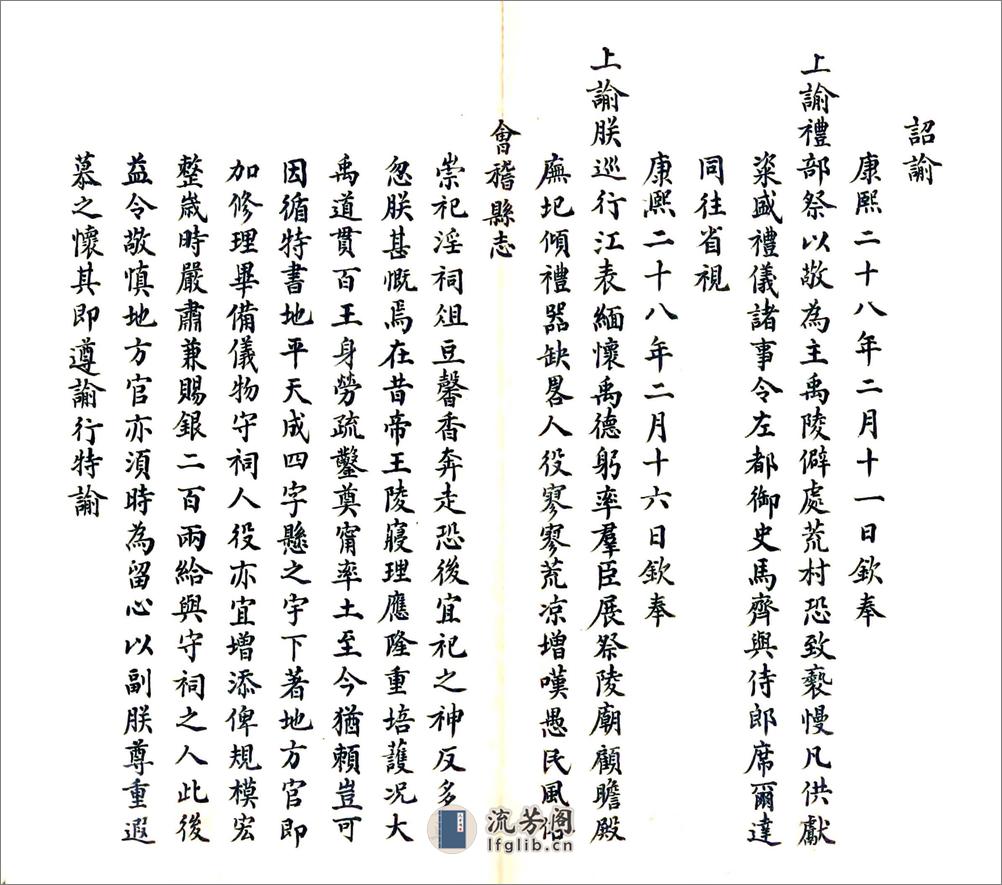 詔諭
康熙二十八年二月十一日欽奉
上諭禮部祭以敬為主禹陵僻處荒村恐致褻慢凡供獻
粢盛禮儀諸事令左都御史馬齊與侍郎席爾達
同往省視
康熙二十八年二月十六日欽奉
上諭朕巡行江表緬懷禹德躬率羣臣展祭陵廟顧瞻殿
廡圮傾禮器缺畧人役寥寥荒凉增嘆愚民風俗
會稽縣志
崇祀淫祠俎豆馨香奔走恐後宜祀之神反多
忽朕甚慨焉在昔帝王陵寢理應隆重培護况大
禹道貫百王身勞疏鑿奠甯率土至今猶賴豈可
因循特書地平天成四字懸之宇下著地方官即
加修理畢備儀物守祠人役亦宜增添俾規模宏
整歲時嚴肅兼賜銀二百兩給與守祠之人此後
益令敬慎地方官亦須時為留心以副朕尊重遐
慕之懷其即遵諭行特諭
流芳阁
lfglib.cn